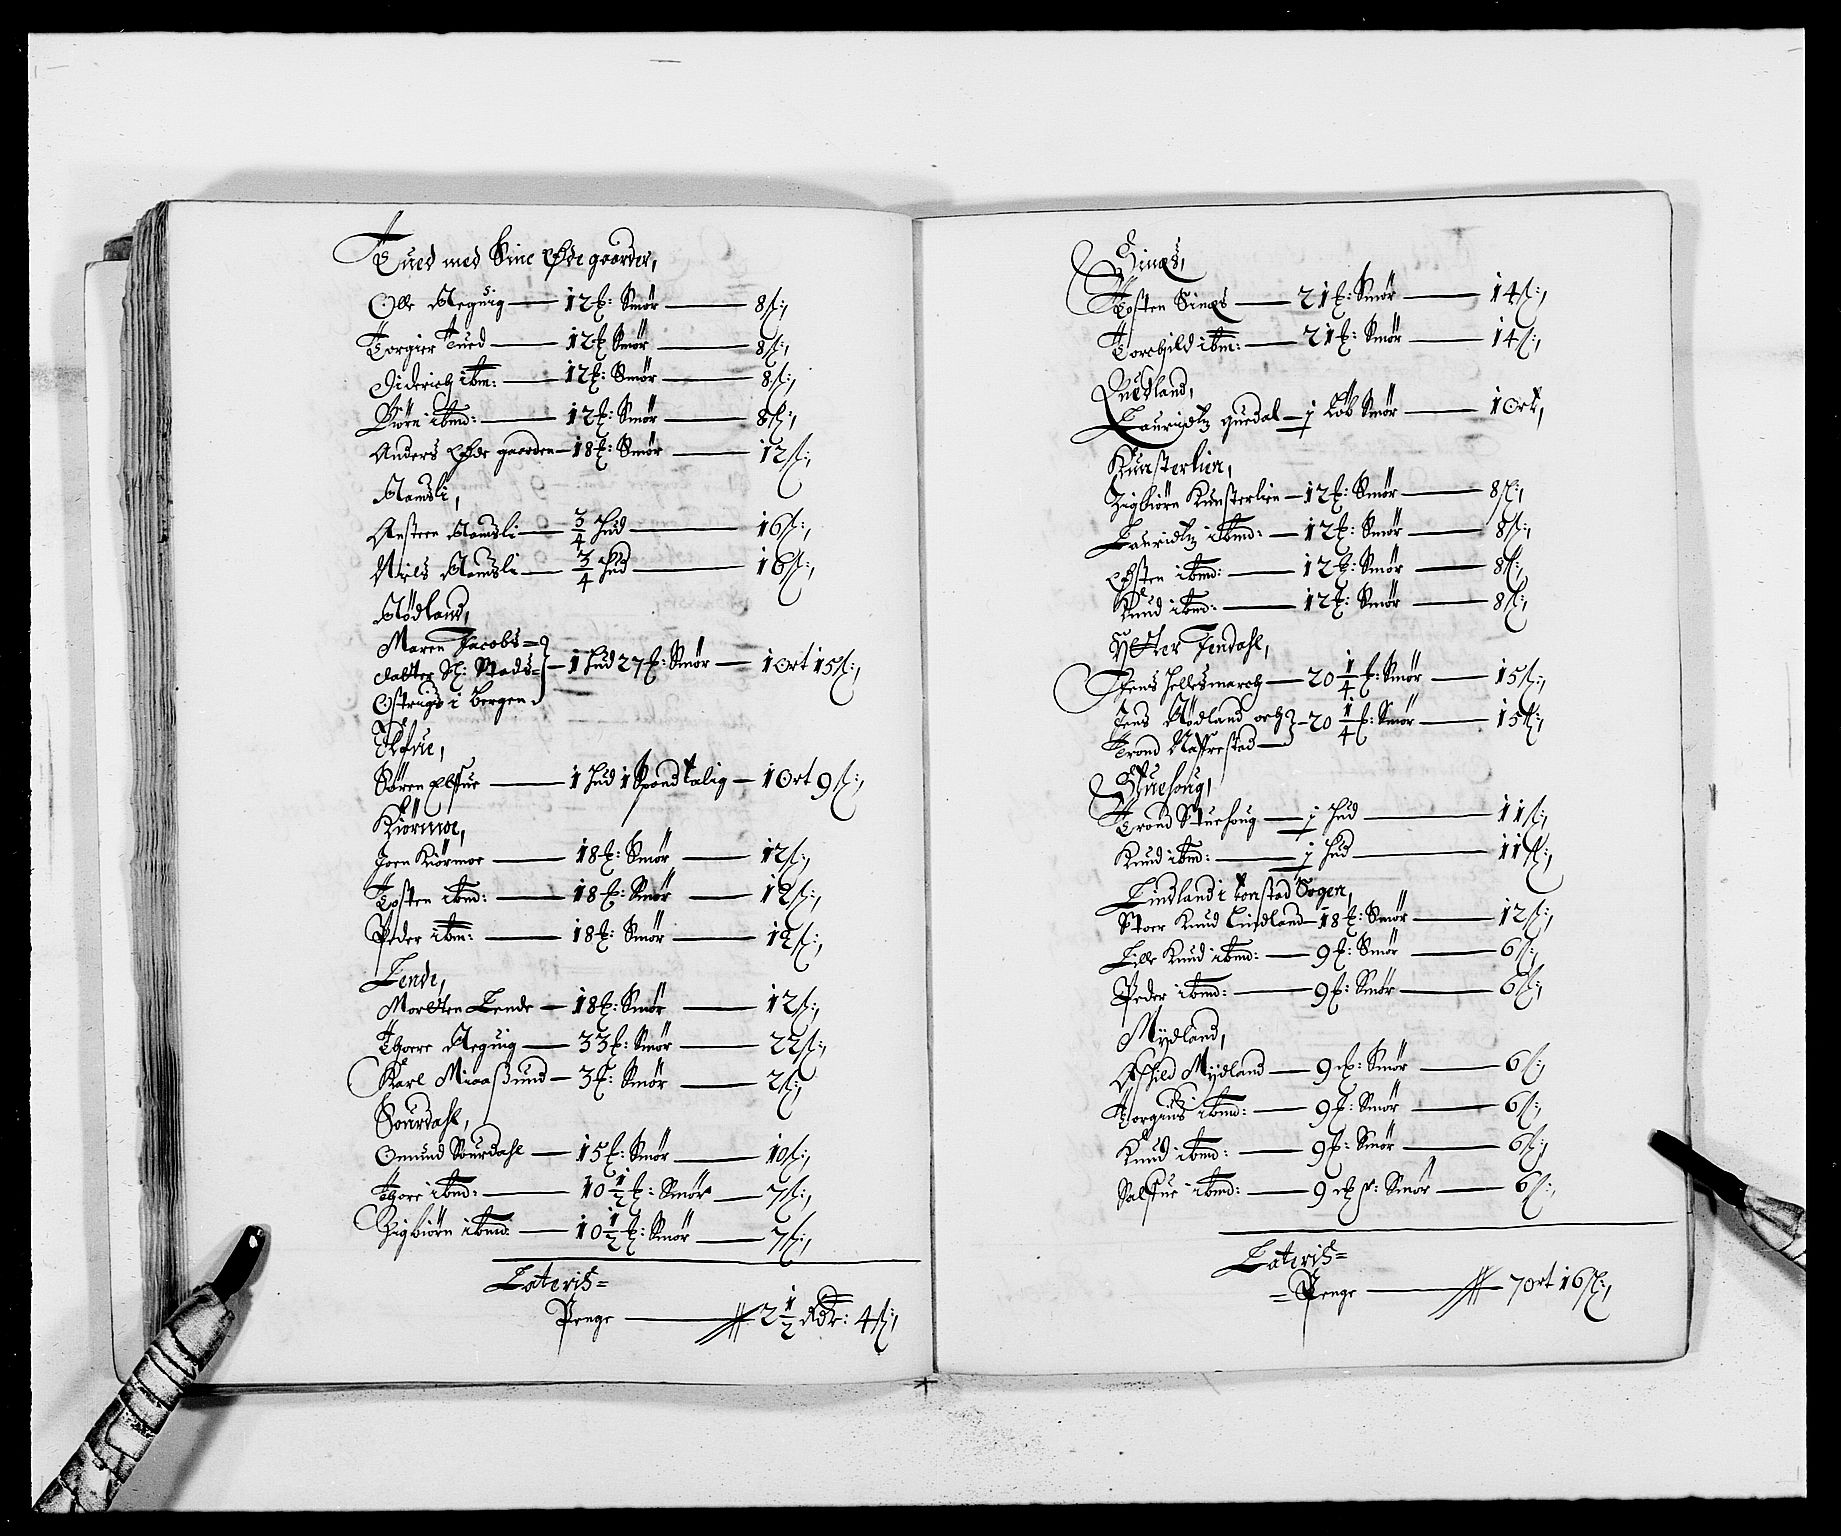 Tued med Sine Øde gaarder,
Olle Aeguig — 12 ℔: Smör — 8 ß:,
Torgier Tued — 12 ℔ Smör — 8 ß:,
Diderich ibm: — 12 ℔: Smör — 8 ß:,
Biörn ibmd: — 12 ℔: Smör — 8 ß:,
Anders Øde gaarden — 18 ℔: Smör — 12 ß:,
Ramsli,
Austeen Ramsli — 3/4 Hud — 16 ß:,
Niels Ramsli — 3/4 Hud — 16 ß:,
Rödland,
Maren Jacobs=
datter Sl: Mads=
Ostrugs i Bergen — 1 Hud 27 ℔: Smör — 1 Ort 15 ß:,
Sören — 1 Hud 1 Spand talig — 1 Ort 9 ß:,
Kiörmoe,
Joen Kiörmoe — 18 ℔: Smör — 12 ß:,
Tosten ibmd: — 18 ℔: Smör — 12 ß:,
Peder ibm: — 18 ℔: Smör — 12 ß:,
Lende,
Morten Lende — 18 ℔: Smör — 12 ß:,
Thore Aeguig — 33 ℔: Smör — 22 ß:,
Karl Miaaßund — 3 ℔: Smör — 2 ß:,
Sourdahl,
Omund Sourdahl — 15 ℔: Smör — 10 ß:,
Thore ibmd: — 10 1/2 ℔: Smör — 7 ß:,
Sigbiörn ibmd: — 10 1/2 ℔: Smör — 7 ß:,
Lateris=
Penge — 2 1/2 Rdr: 4 ß:,
Sinæs,
Tosten Sinæs — 21 ℔: Smör — 14 ß:,
Torchild ibm: — 21 ℔: Smör — 14 ß:,
Quedland,
Lauridtz quedal — j Löb Smör — 1 Ort,
Kunsterlien,
Zigbiörn Kunsterlien — 12 ℔: Smör — 8 ß:,
Lauridtz ibmd: — 12 ℔: Smör — 8 ß:,
ibmd: — 12 ℔: Smör — 8 ß:,
Knud ibmd: — 12 ℔: Smör — 8 ß:,
Ytter Jendahl,
Jens Hellesmarch — 20 1/4 ℔: Smör — 15 ß:,
Jens Rödland och
Trond Naffrestad — 20 1/4 ℔: Smör — 15 ß:,
Stuehoug,
Trond Stuehoug — j Hud — 11 ß:,
Knud ibmd: — j Hud — 11 ß:,
Lindland i tonstad Sogen,
Stoer Knud Lindland — 18 ℔: Smör — 12 ß:,
Lille Knud ibmd: — 9 ℔: Smör — 6 ß:,
Peder ibmd: — 9 ℔: Smör — 6 ß:,
Mydland,
Aschild Mydland — 9 ℔: Smör — 6 ß:,
Torgius ibmd: — 9 ℔: Smör — 6 ß:,
Knud ibmd: — 9 ℔: Smör — 6 ß:,
Salffue ibmd: — 9 ℔: Smör — 6 ß:,
Lateris=
=Penge — 7 ort 16 ß:,